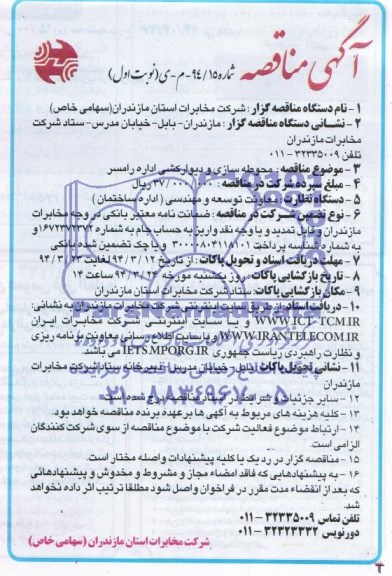 آگهی مناقصه شماره ۹۴/۱۵-م-ی (نوبت اول)
۱ - نام دستگاه مناقصه گزار : شرکت مخابرات استان مازندران(سهامی خاص)
۲ - نشانی دستگاه مناقصه گزار : مازندران- بابل-خیابان مدرس- ستاد شرکت
مخابرات مازندران
تلفن ۳۲۳۳۵۰۰۹-۰۱۱
۳ - موضوع مناقصه : محوطه سازی و دیوارکشی اداره رامسر
۴ - مبلغ سپرده شرکت در مناقصه : ۳۷/۰۰۰/۰۰۰ ریال
۵ - دستگاه نظارت : معاونت توسعه و مهندسی ( اداره ساختمان )
۶ - نوع تضمین شرکت در مناقصه : ضمانت نامه معتبر بانکی در وجه مخابرات
مازندران و قابل تمدید و یا وجه نقد واریز به حساب جام به شماره
به شماره شناسه پرداخت و یا چک تضمین شده بانکی
۷ - مهلت دریافت اسناد و تحویل پاکات : از تاریخ ۹۴/۳/۱۲ لغایت ۹۴/۳/۲۳
۸ - تاریخ بازگشایی پاکات : روز یکشنبه مورخه ۹۴/۳/۲۴ ساعت ۱۴
۹ - مکان بازگشایی پاکات : ستاد شرکت مخابرات استان مازندران
۱۰ - دریافت اسناد : از طریق سایت اینترنتی شرکت مخابرات مازندران به نشانی:
WWW.ICT-TCM.IR و یا سایت اینترنتی شرکت مخابرات ایران
WWW.IRANTELECOM.IR و یا سایت اطلاع رسانی معاونت برنامه ریزی
و نظارت راهبردی ریاست جمهوری IETS.MPORG.IR می باشد.
۱۱ - نشانی تحویل پاکات : بابل- خیابان مدرس - دبیرخانه ستاد شرکت مخابرات
مازندران
۱۲ - سایر جزئیات و شرایط در اسناد مناقصه درج شده است.
۱۳ - کلیه هزینه های مربوط به آگهی ها بر عهده برنده مناقصه خواهد بود.
۱۴ - ارتباط موضوع فعالیت شرکت با موضوع مناقصه از سوی شرکت کنندگان
الزامی است.
۱۵ - مناقصه گزار در رد یک یا کلیه پیشنهادات واصله مختار است.
۱۶ - به پیشنهادهایی که فاقد امضاء مجاز و مشروط و مخدوش و پیشنهادهائی
که بعد از انقضاء مدت مقرر در فراخوان واصل شود مطلقا ترتیب اثر داده نخواهد
شد.
تلفن تماس ۳۲۳۳۵۰۰۹ - ۰۱۱
دورنویس ۳۲۳۲۳۳۳۲ - ۰۱۱
شرکت مخابرات استان مازندران (سهامی خاص)
۰۲۱-۸۸۳۴۹۶۷۰-۵